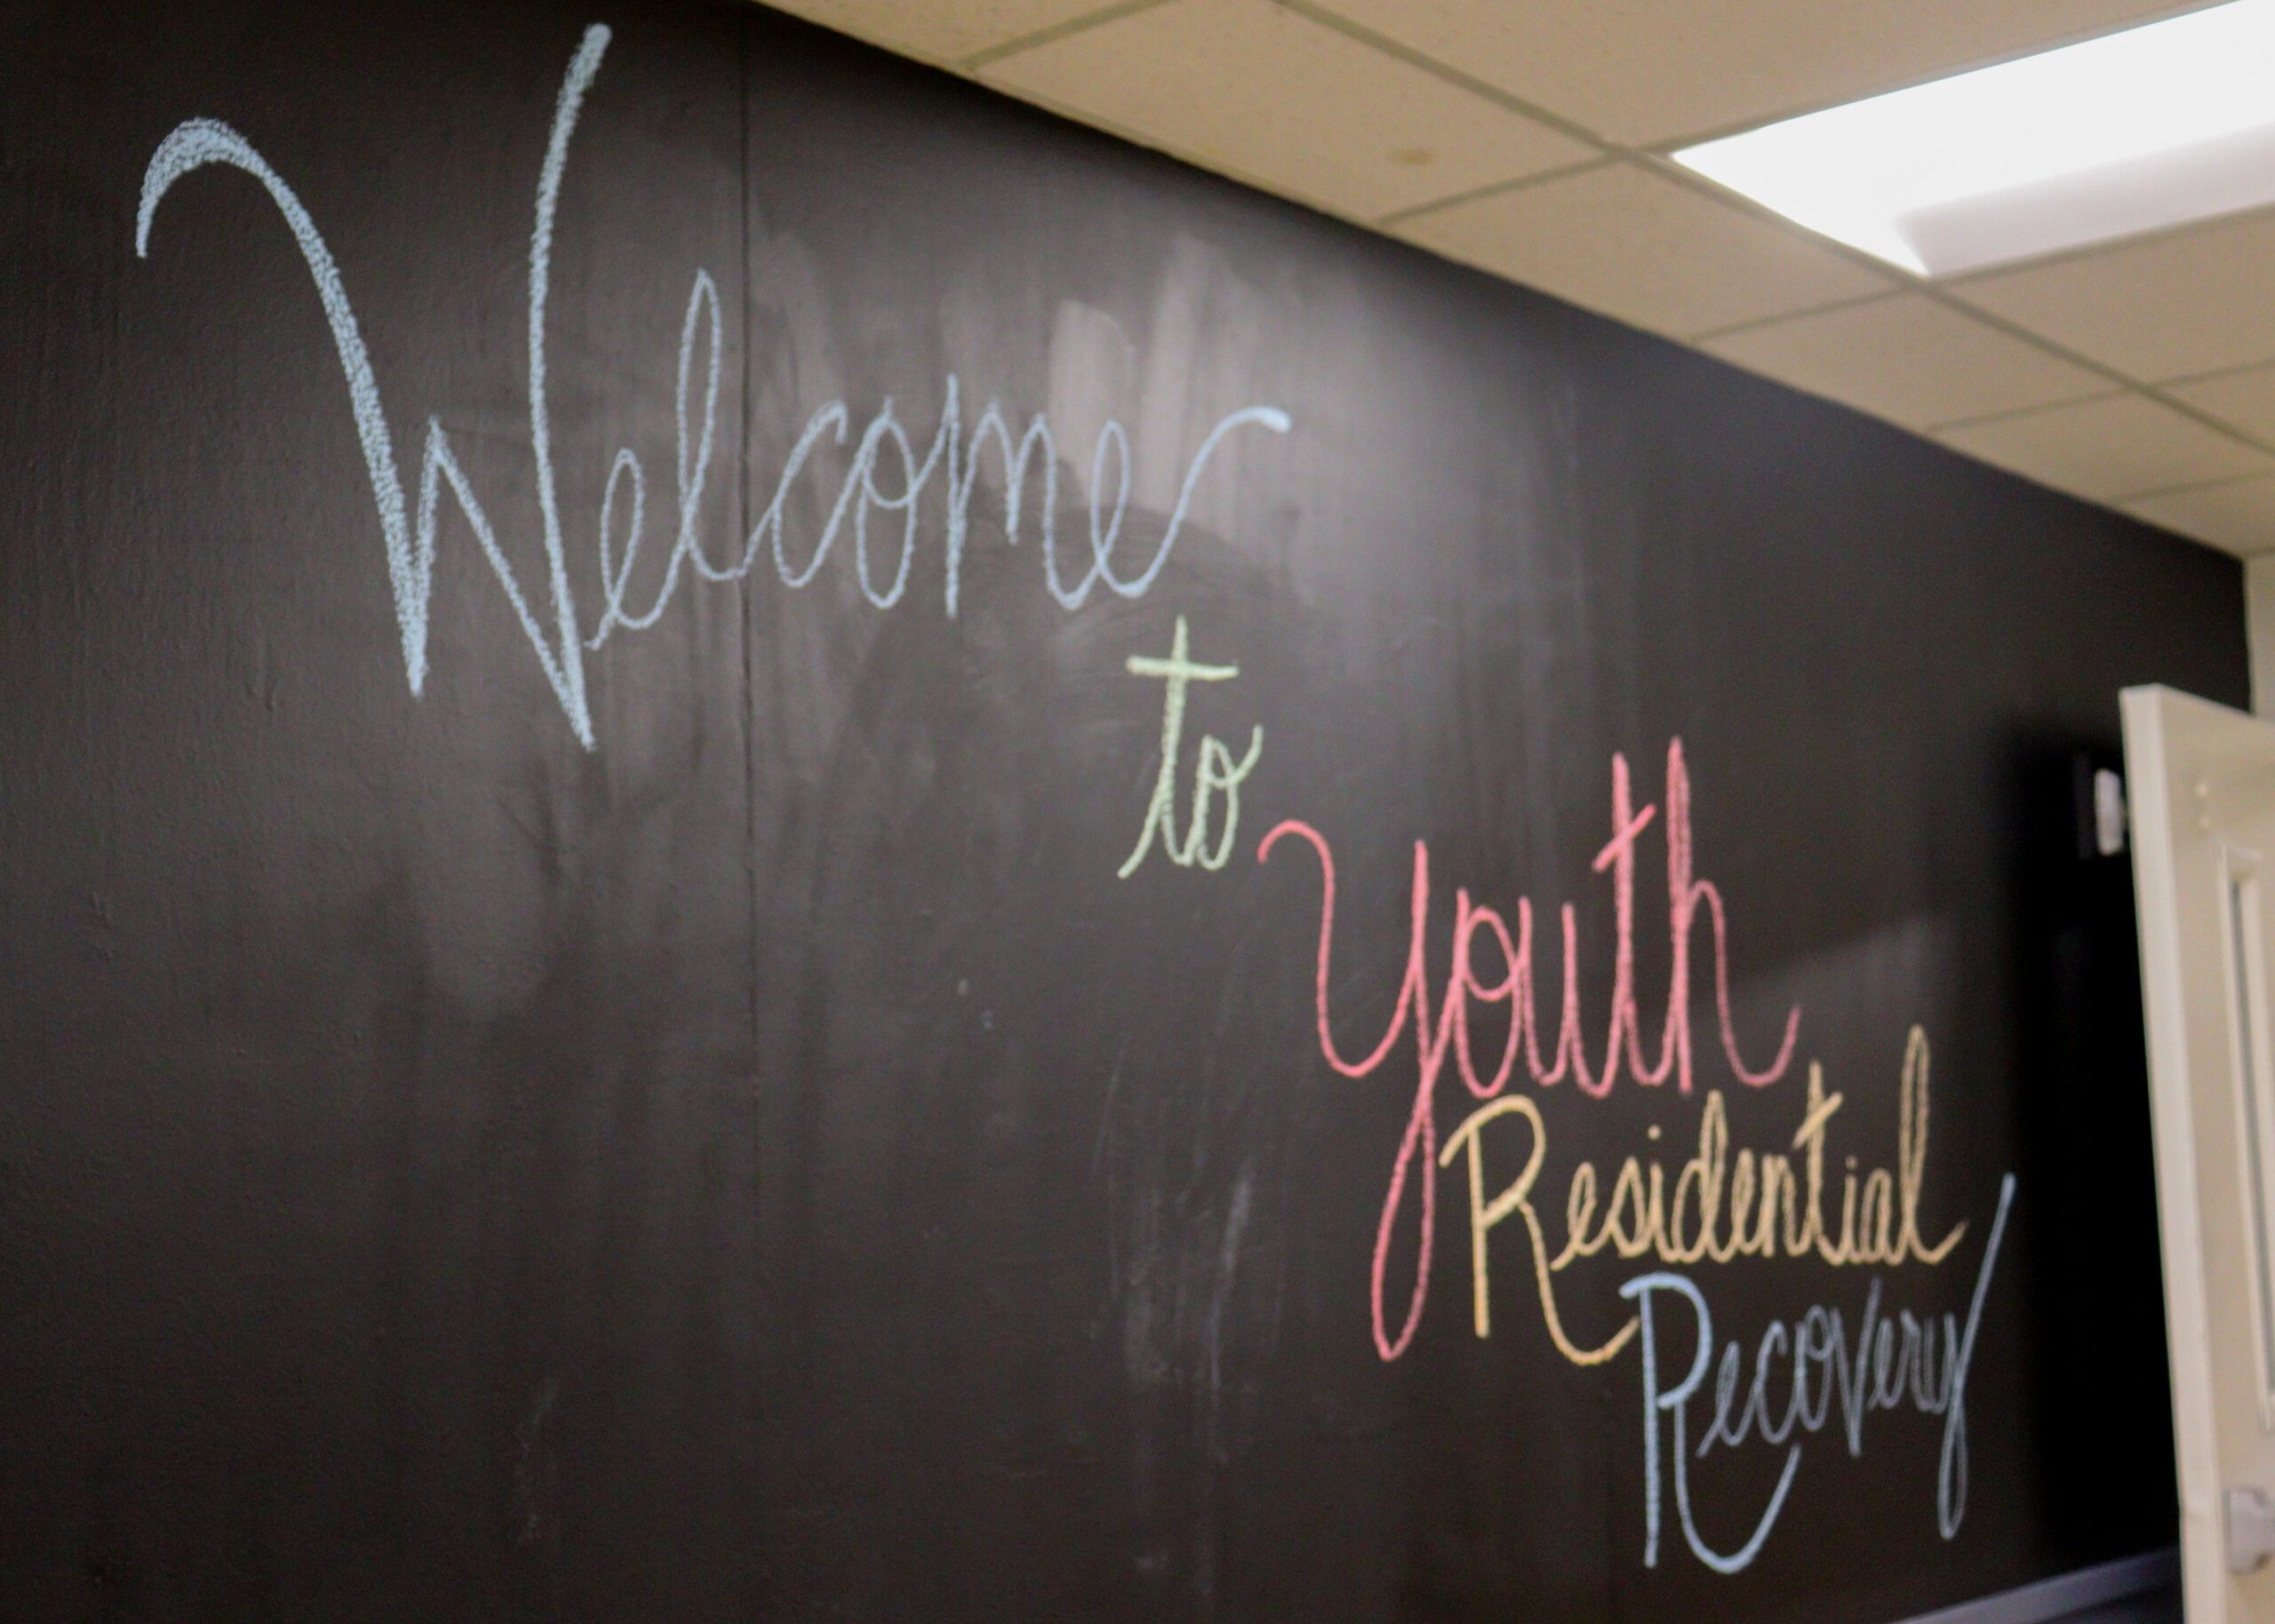 Welcome
to
Youth
Residential
Recovery